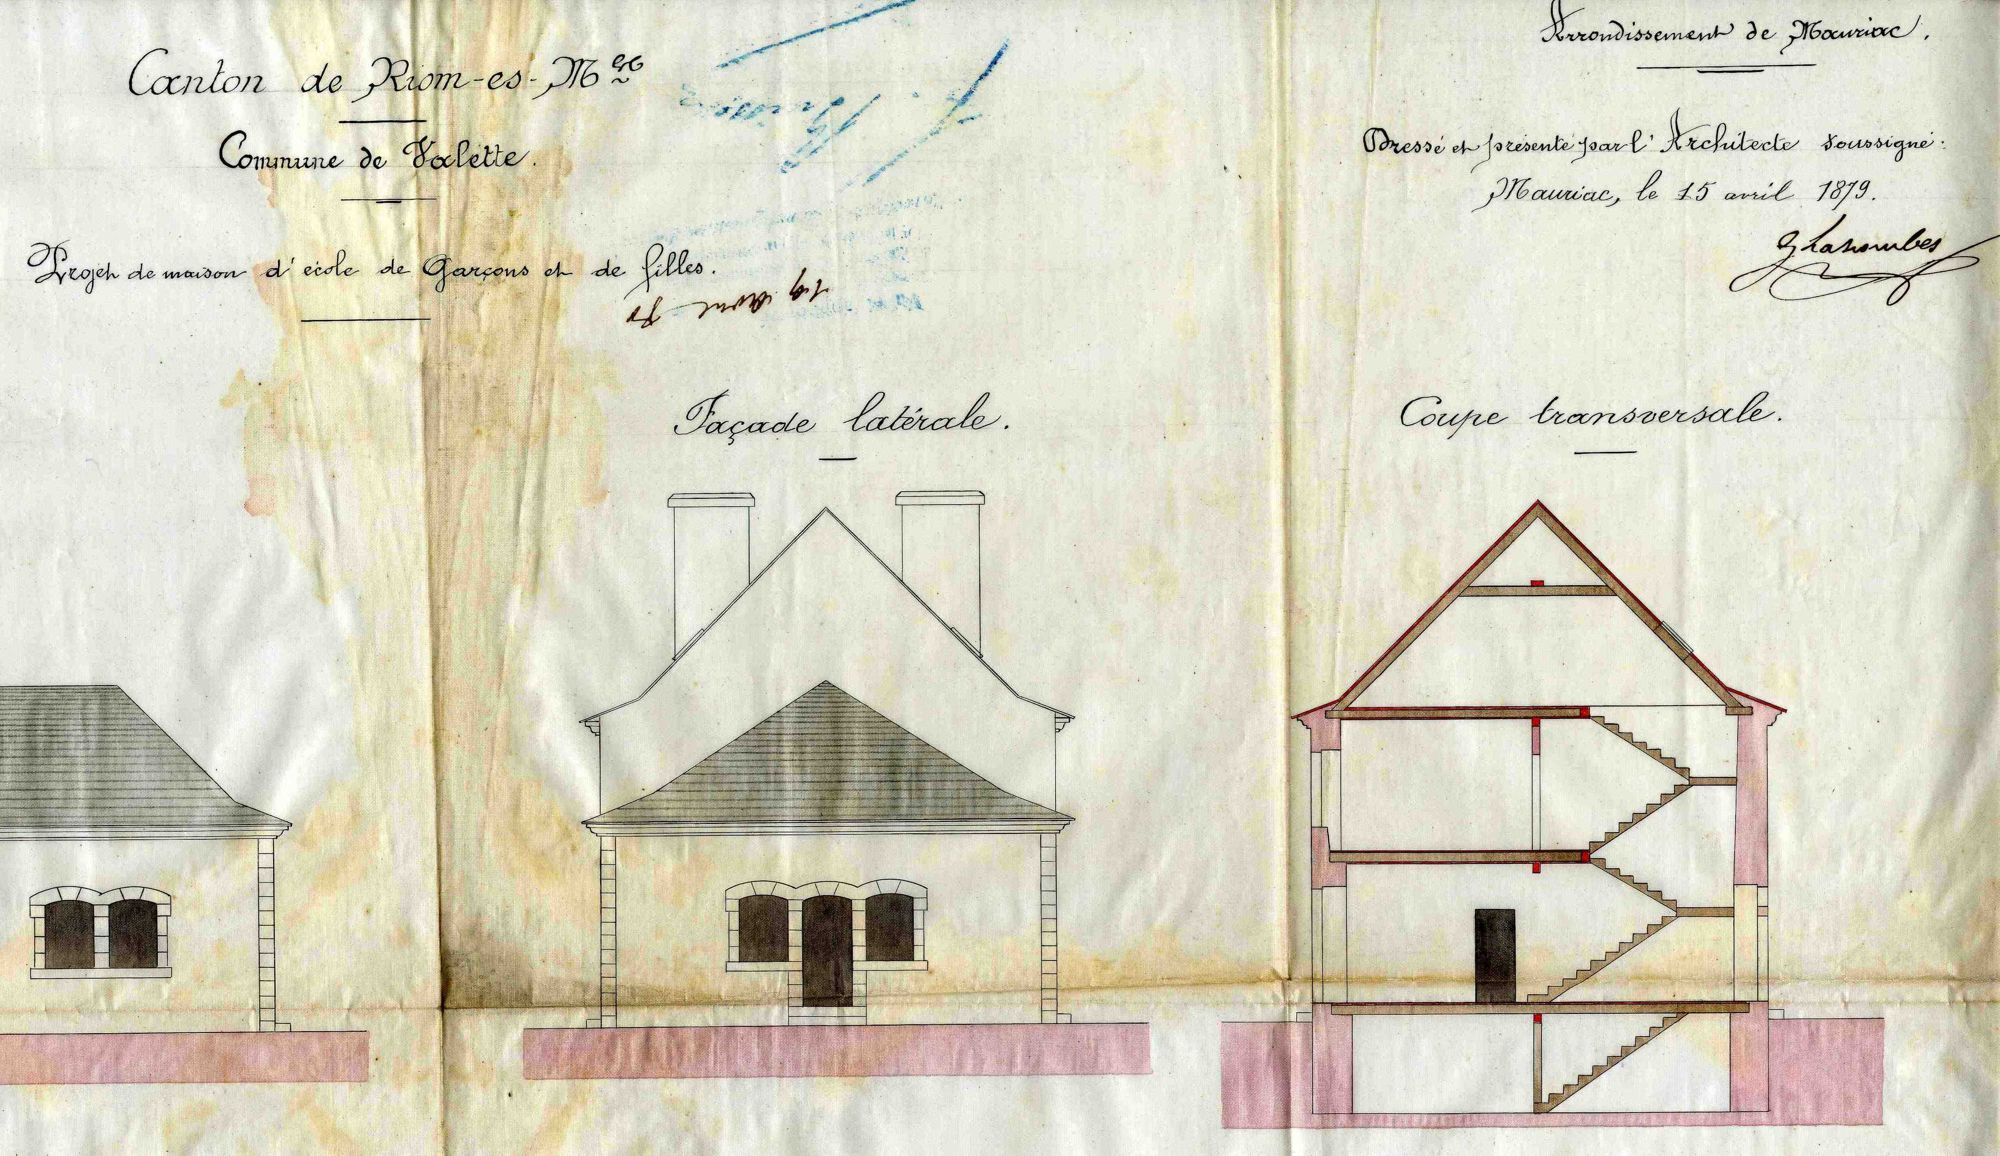 Canton de Riom-es-M<sup>gnes</sup>
Commune de Valette.
Projet de maison d'école de Garçons et de filles.
Arrondissement de Mauriac.
Dressé et présenté par l'Architecte soussigné:
Mauriac, le 15 avril 1879.
Façade latérale.
Coupe transversale.